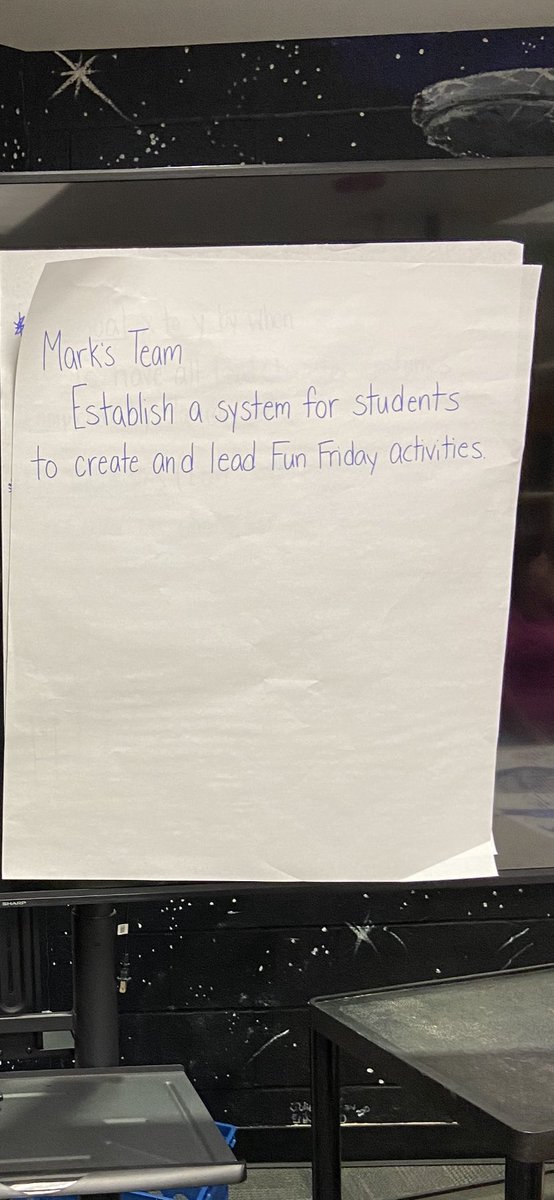 Mark's Team
Establish a system for students
to create and lead Fun Friday activities.
SHARP